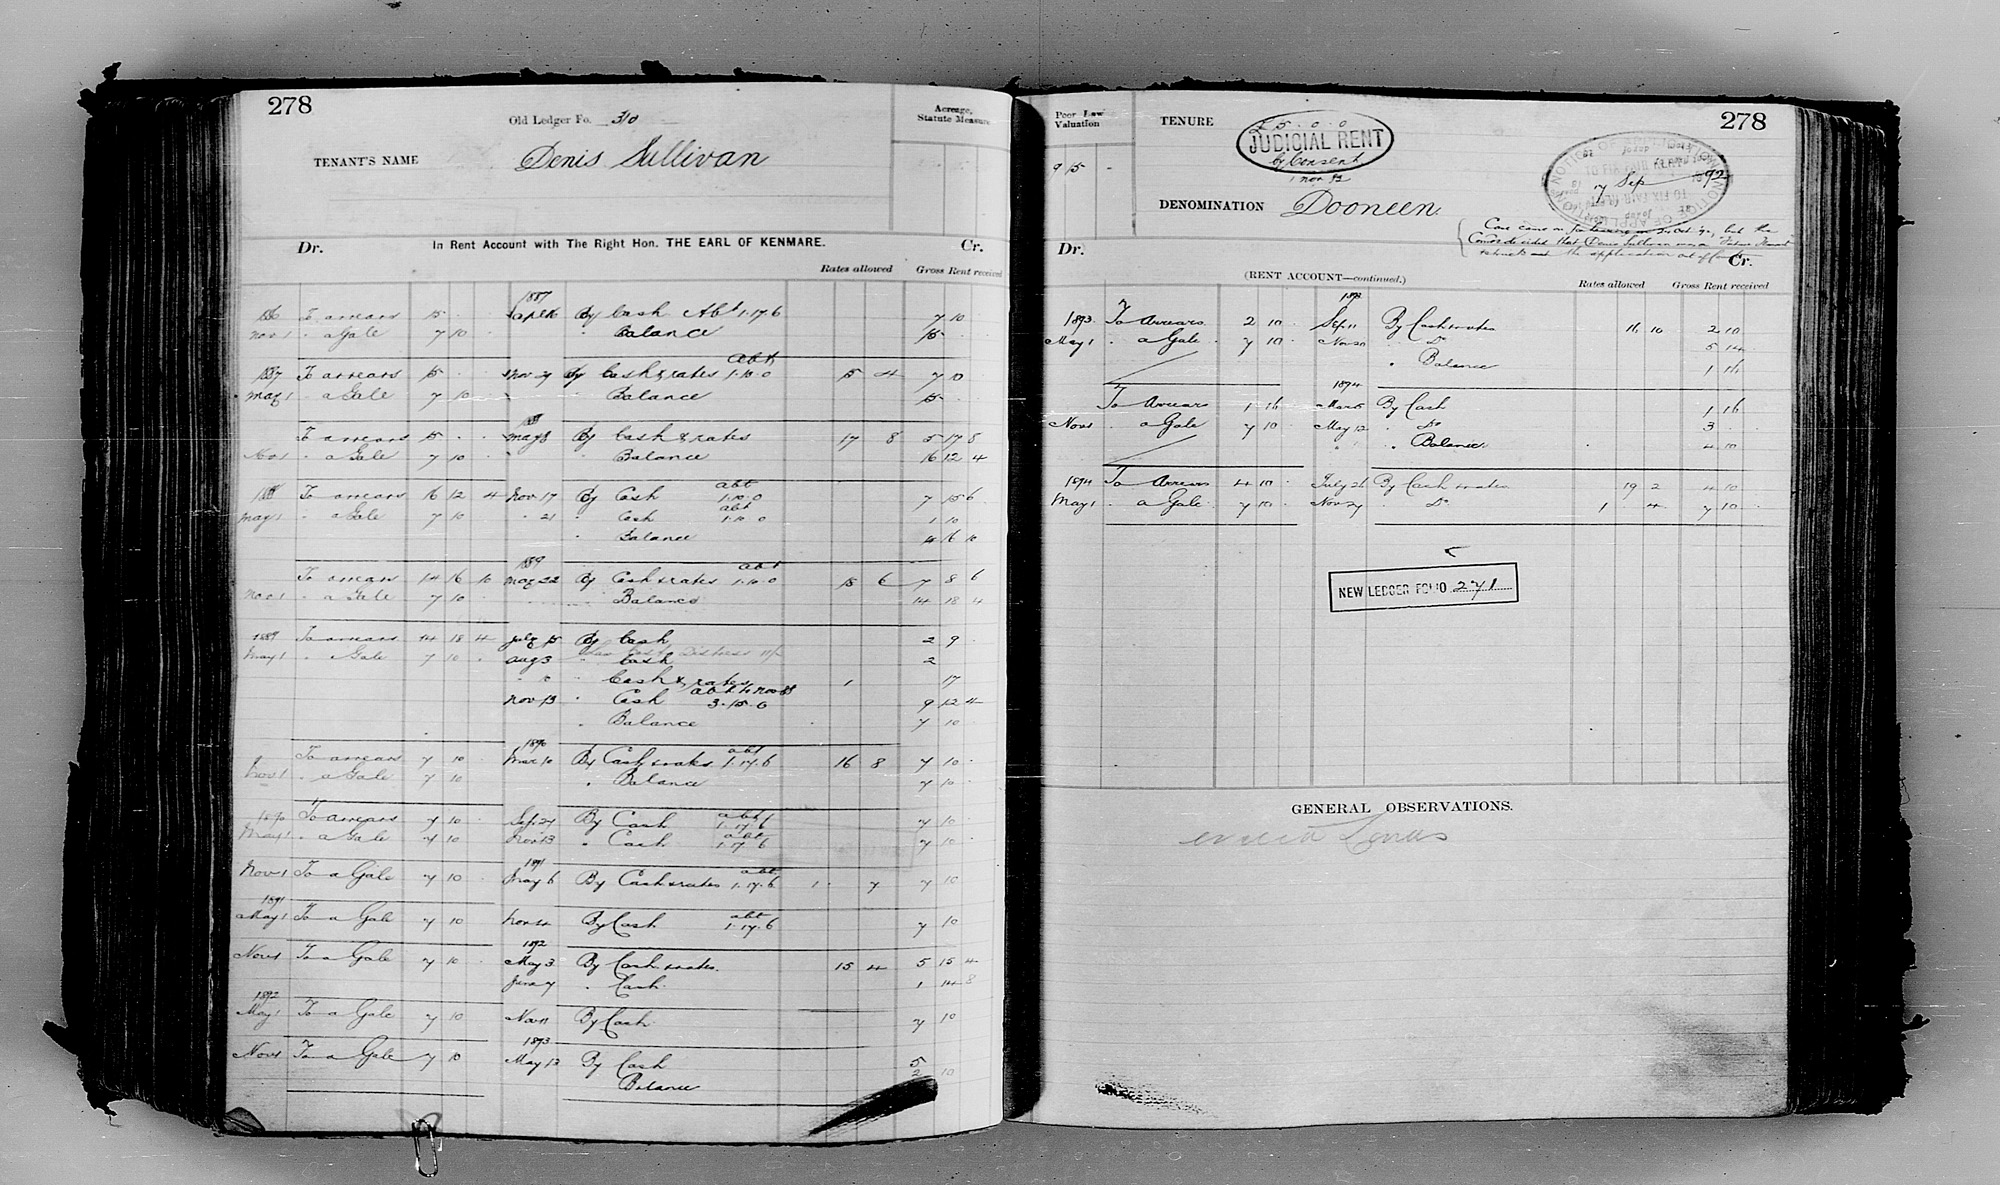 278
Old Ledger Fo. 310
Acreage, Statute Measure
TENANT'S NAME Denis Sullivan
Dr. In Rent Account with The Right Hon. THE EARL OF KENMARE. Cr.
Rates allowed Gross Rent received
1887
1886 To arrears 15 . . By Cash Abt 1.17.6 7 10
Nov 1 " a Gale 7 10 Balance 15 . .
abt
1887 To arrears 15 . . Nov 29 By Cash & rates 1.10.0 15 4 7 10
May 1 " a Gale 7 10 Balance 15 .
To arrears 15 . . May 8 By Cash & rates 17 8 5 17 8
Nov 1 " a Gale 7 10 Balance 16 12 4
abt
1888 To arrears 16 12 4 Nov 17 By Cash 1.10.0 7 15 6
abt
May 1 " a Gale 7 10 " 21 " Cash 1.10.0 1 10
" Balance 4 16 10
1889 abt
To arrears 14 16 10 May 22 By Cash & rates 1.10.0 15 6 7 8 6
Nov 1 " a Gale 7 10 Balance 14 18 4
1889 To arrears 14 18 4 July 15 By Cash 2 9
May 1 " a Gale 7 10 . Aug 3 " Cash 2
" Cash & rates 1 17
abt to Nov 88
Nov 13 " Cash 3.15.0 9 12 4
" Balance 7 10
1890 abt
To arrears 7 10 Mar 10 By Cash & rates 1.17.6 16 8 7 10
Nov 1 " a Gale 7 10 " Balance 7 10
abt
1890 To arrears 7 10 Sep 29 By Cash 1.17.6 7 10
abt
May 1 " a Gale 7 10 Nov 13 " Cash 1.17.6 7 10
1891 abt
Nov 1 To a Gale 7 10 May 6 By Cash & rates 1.17.6 1 . 7 7 10
1891 abt
May 1 To a Gale 7 10 Nov 4 By Cash 1.17.6 7 10
1892
Nov 1 To a Gale 7 10 May 3 By Cash & rates 15 4 5 15 4
June 7 " Cash 1 14 8
1892
May 1 To a Gale 7 10 Nov 11 By Cash 7 10
1893
Nov 1 To a Gale 7 10 May 13 By Cash 5
Balance 2 10
278
Poor Law Valuation
9 15 -
TENURE
£5.0.0
JUDICIAL RENT
by Consent
1 Nov 82
NOTICE OF APPLICATION
TO FIX FAIR RENT
7 Sep 92
DENOMINATION Dooneen.
Case came on for hearing on Oct , but the
Comrs decided that Denis Sullivan was a Future Tenant
& struck out the application out of Court
Dr. Cr.
(RENT ACCOUNT—continued.)
Rates allowed Gross Rent received
1893
1893 To Arrears 2 10 . Sep 11 By Cash & rates 16 10 2 10
May 1 " a Gale 7 10 . Nov 20 " Do 5 14
" Balance 1 16
1894
To Arrears 1 16 Mar 5 By Cash 1 16
Nov 1 " a Gale 7 10 May 12 " Do 3 .
" Balance 4 10
1894 To Arrears 4 10 July 26 By Cash & rates 19 2 4 10
May 1 " a Gale 7 10 Nov 27 " Do 1 . 4 7 10
NEW LEDGER FOLIO 271
GENERAL OBSERVATIONS.